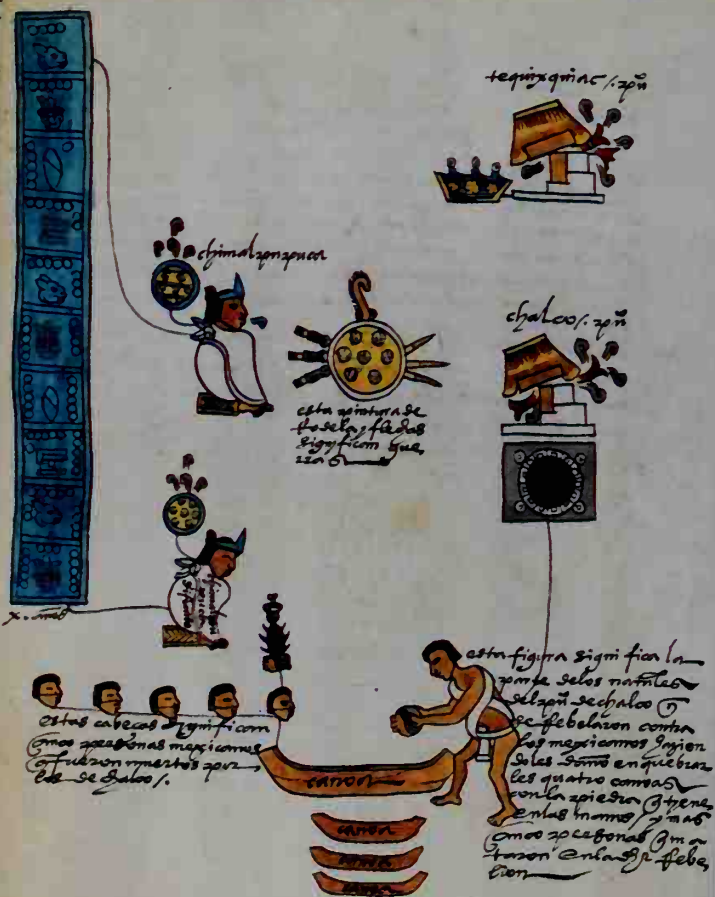 tequixquiac /. pūo
chimalpupuca
chalco /. pūo
esta pintura de
rodela y flechas
significan gue,
rra
x. años
estas cabeças significan
çinco personas mexicanos
q fueron muertos por
los de chalco /.
canoa
canoa
canoa
canoa
esta figura significa la
parte de los naturales
del pūo de chalco q
se Rebelaron contra
los mexicanos hazien
doles daño en quebrar
les quatro canoas
con la piedra q tiene
en las manos / y mas
çinco personas q ma
taron en la dha Rebe,
lion